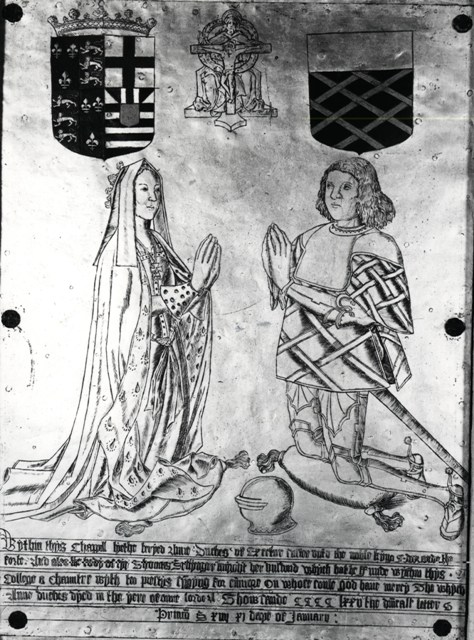 Wythin thys Chappell lyethe beryed Anne Duches of Exetur suster unto the noble kyng Edward the
forte And also the body of syr Thomas Sellynger knyght her husband which hathe funde within thys
College a Chauntre with too prestys syngyng for evermore On whose soule god have mercy The wych
Anne duches dyed in the yere of oure lorde Thowsande CCCC lxxv the letter
S daye of January